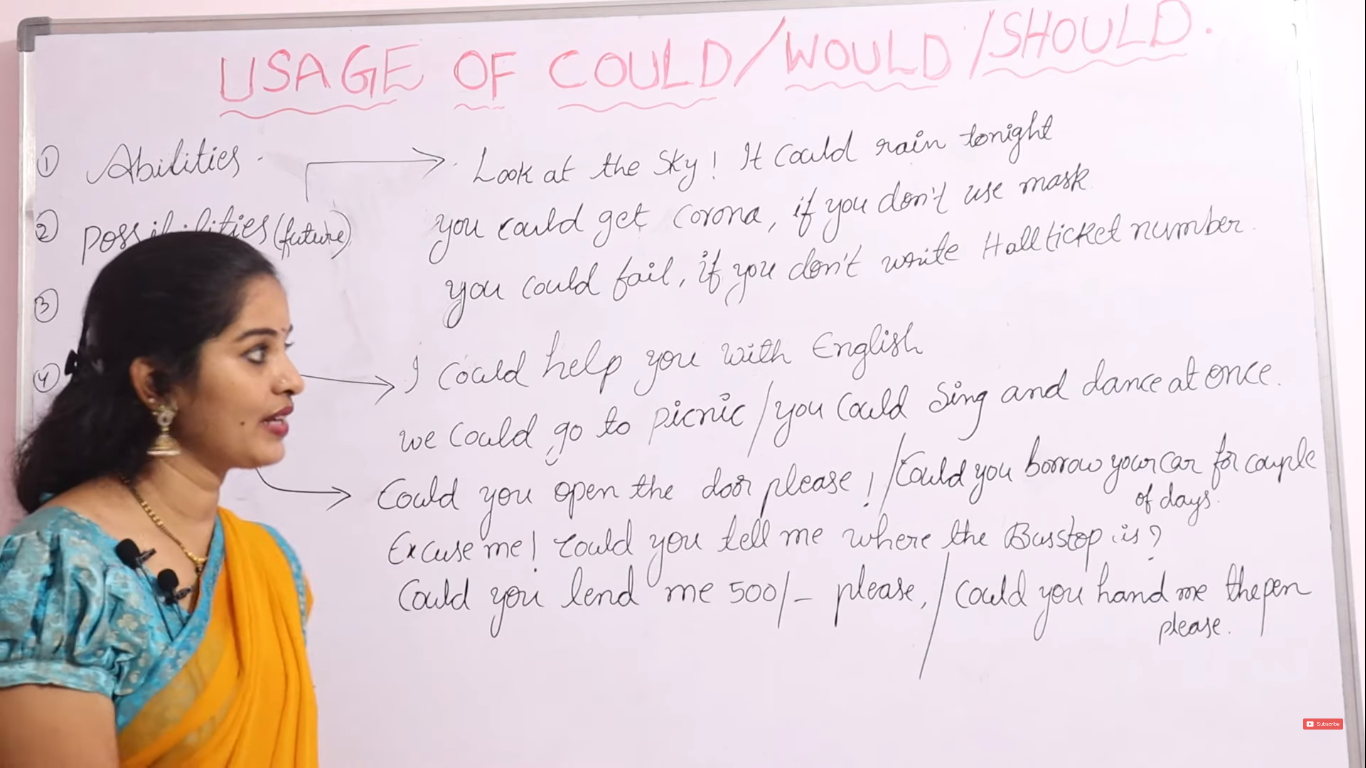 USAGE OF COULD/WOULD/SHOULD.
① Abilities.
② possibilities (future)
③
④
Look at the Sky! It Could rain tonight
you could get corona, if you don't use mask
you could fail, if you don't write Hallticket number.
I could help you with English
we could go to picnic / you could sing and dance at once.
Could you open the door please! / Could you borrow your car for couple
of days.
Excuse me! Could you tell me where the Busstop is?
Could you lend me 500/- please, / Could you hand me the pen
please.
Subscribe